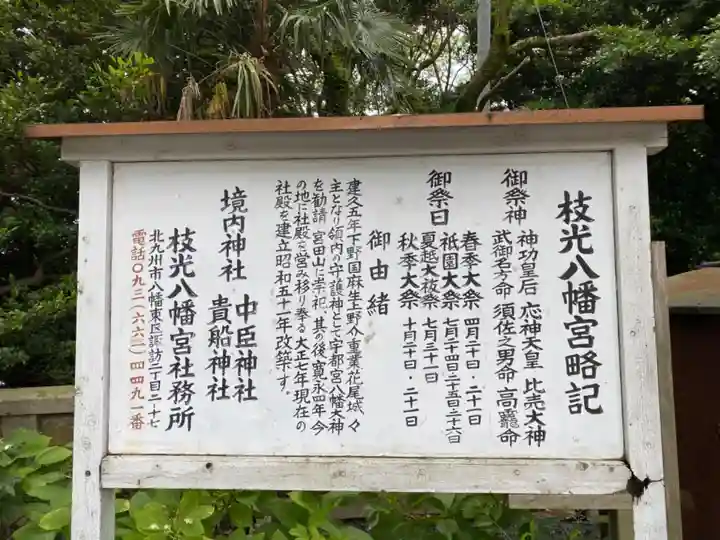 枝光八幡宮略記
御祭神
神功皇后 応神天皇 比売大神
武御名方命 須佐之男命 高龗命
御祭日
春季大祭 四月二十日・二十一日
祇園大祭 七月二十四日二十五日二十六日
夏越大祓祭 七月三十一日
秋季大祭 十月二十日・二十一日
御由緒
建久五年下野国麻生上野介重業花尾城々
主となり領内の守護神として宇都宮八幡大神
を勧請 宮田山に崇祀、其の後、寛永四年今
の地に社殿を営み移り奉る大正七年現在の
社殿を建立昭和五十一年改築す。
境内神社 中臣神社
貴船神社
枝光八幡宮社務所
北九州市八幡東区諏訪二丁目二十七
電話〇九三(六六二)四四九一番